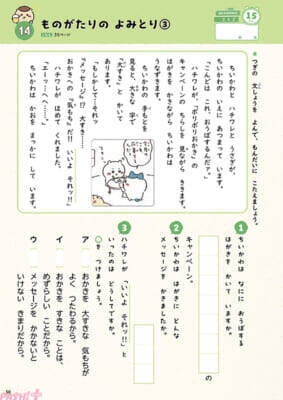 14
ものがたりの よみとり③
15
つぎの 文しょうを よんで、もんだいに こたえましょう。
ちいかわと ハチワレと うさぎが、
ちいかわの いえに あつまって います。
「こんどは これ、おうぼするんだァ。」
ハチワレが、『ポリポリおかき』の
キャンペーンの ちらしを 見ながら
はがきを かきながら ちいかわは
うなずきます。
ちいかわの 手もとを
見ると、大きな 字で
『大すき』と かいて
「もしかして…それっ
『メッセージ』!? 大すき……
おかきへの メッセージも だ!! いいよ それッ!!」
ハチワレが ほめて くれました。
「エーッ…へへ……。」
ちいかわは かおを まっかに して います。
1
ちいかわは なにに おうぼする
はがきを かいて いますか。
の
キャンペーン。
2
ちいかわは はがきに どんな
メッセージを かきましたか。
3
ハチワレが 「いいよ それッ!!」と
いったのは どうしてですか。
○を つけましょう。
ア
おかきを 大すきな 気もちが
よく つたわるから。
イ
おかきを すきな ことは、
めずらしい ことだから。
ウ
メッセージを かかないと
いけない きまりだから。
PASH!+